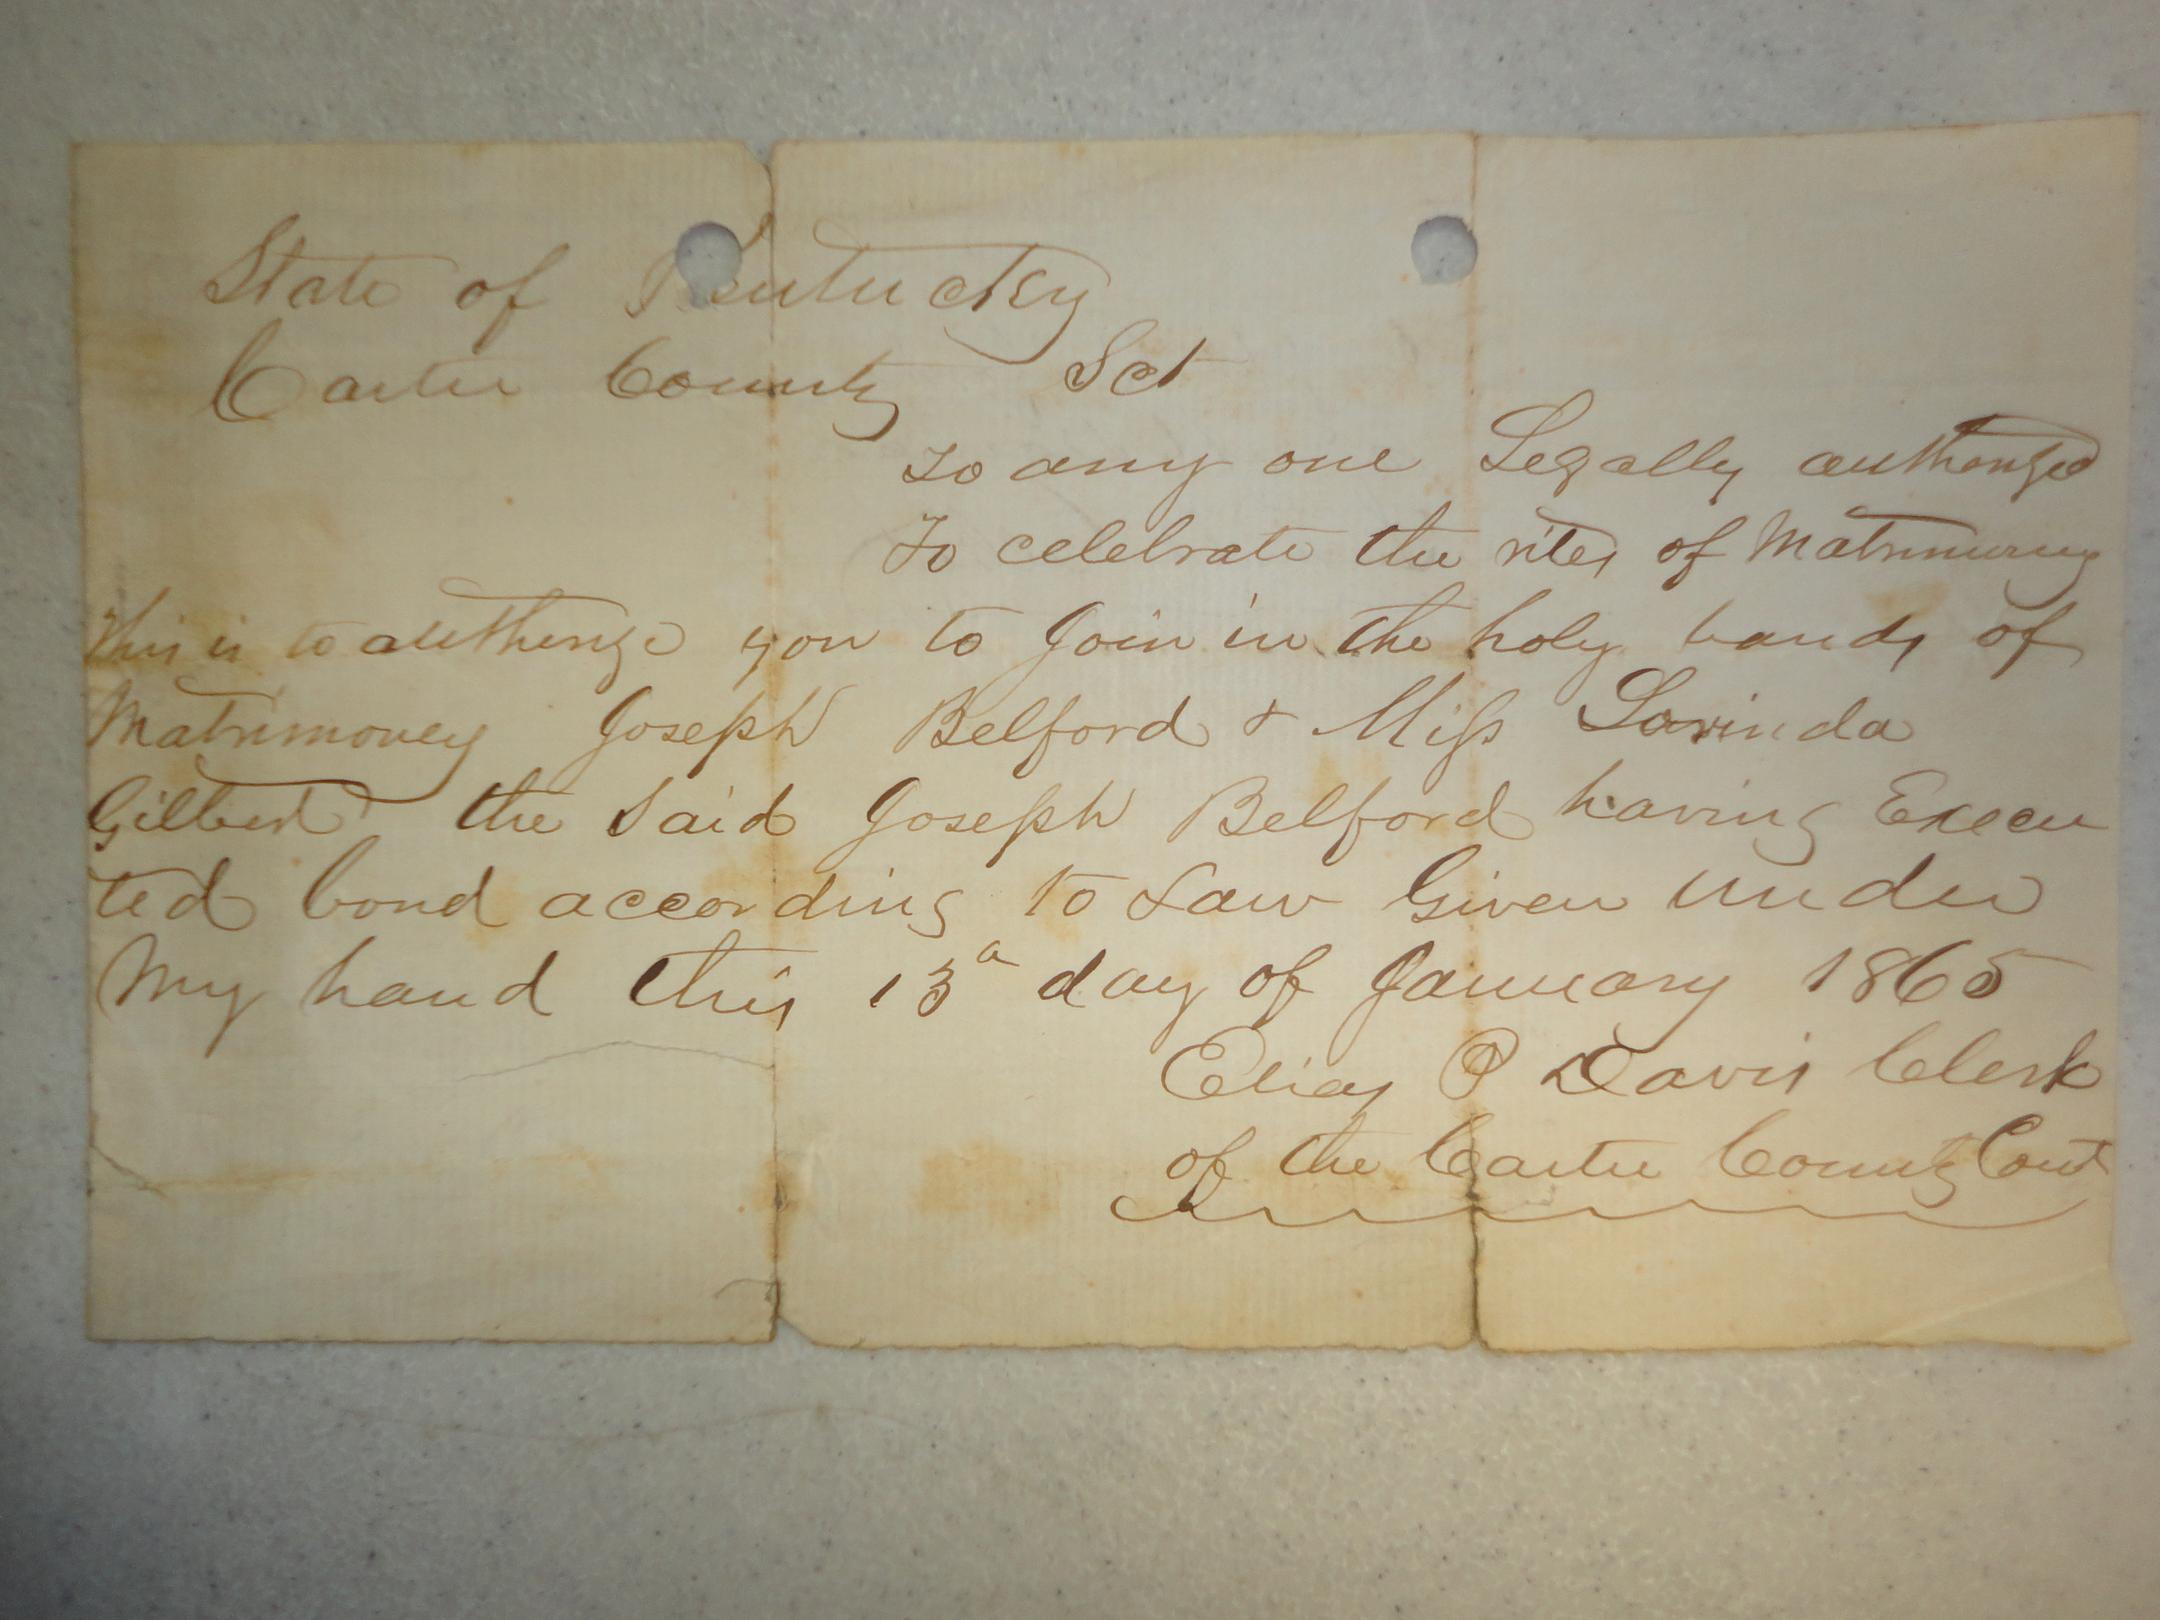 State of Kentucky
Carter County Sct
To any one Legally authorized
To celebrate the rites of Matrimoney
This is to authorize you to Join in the holy bands of
Matrimoney Joseph Belford & Miss Lavinda
Gilbert the Said Joseph Belford having Execu
ted bond according to Law Given under
My hand this 13 day of January 1865
Elias P Davis Clerk
of the Carter County Court